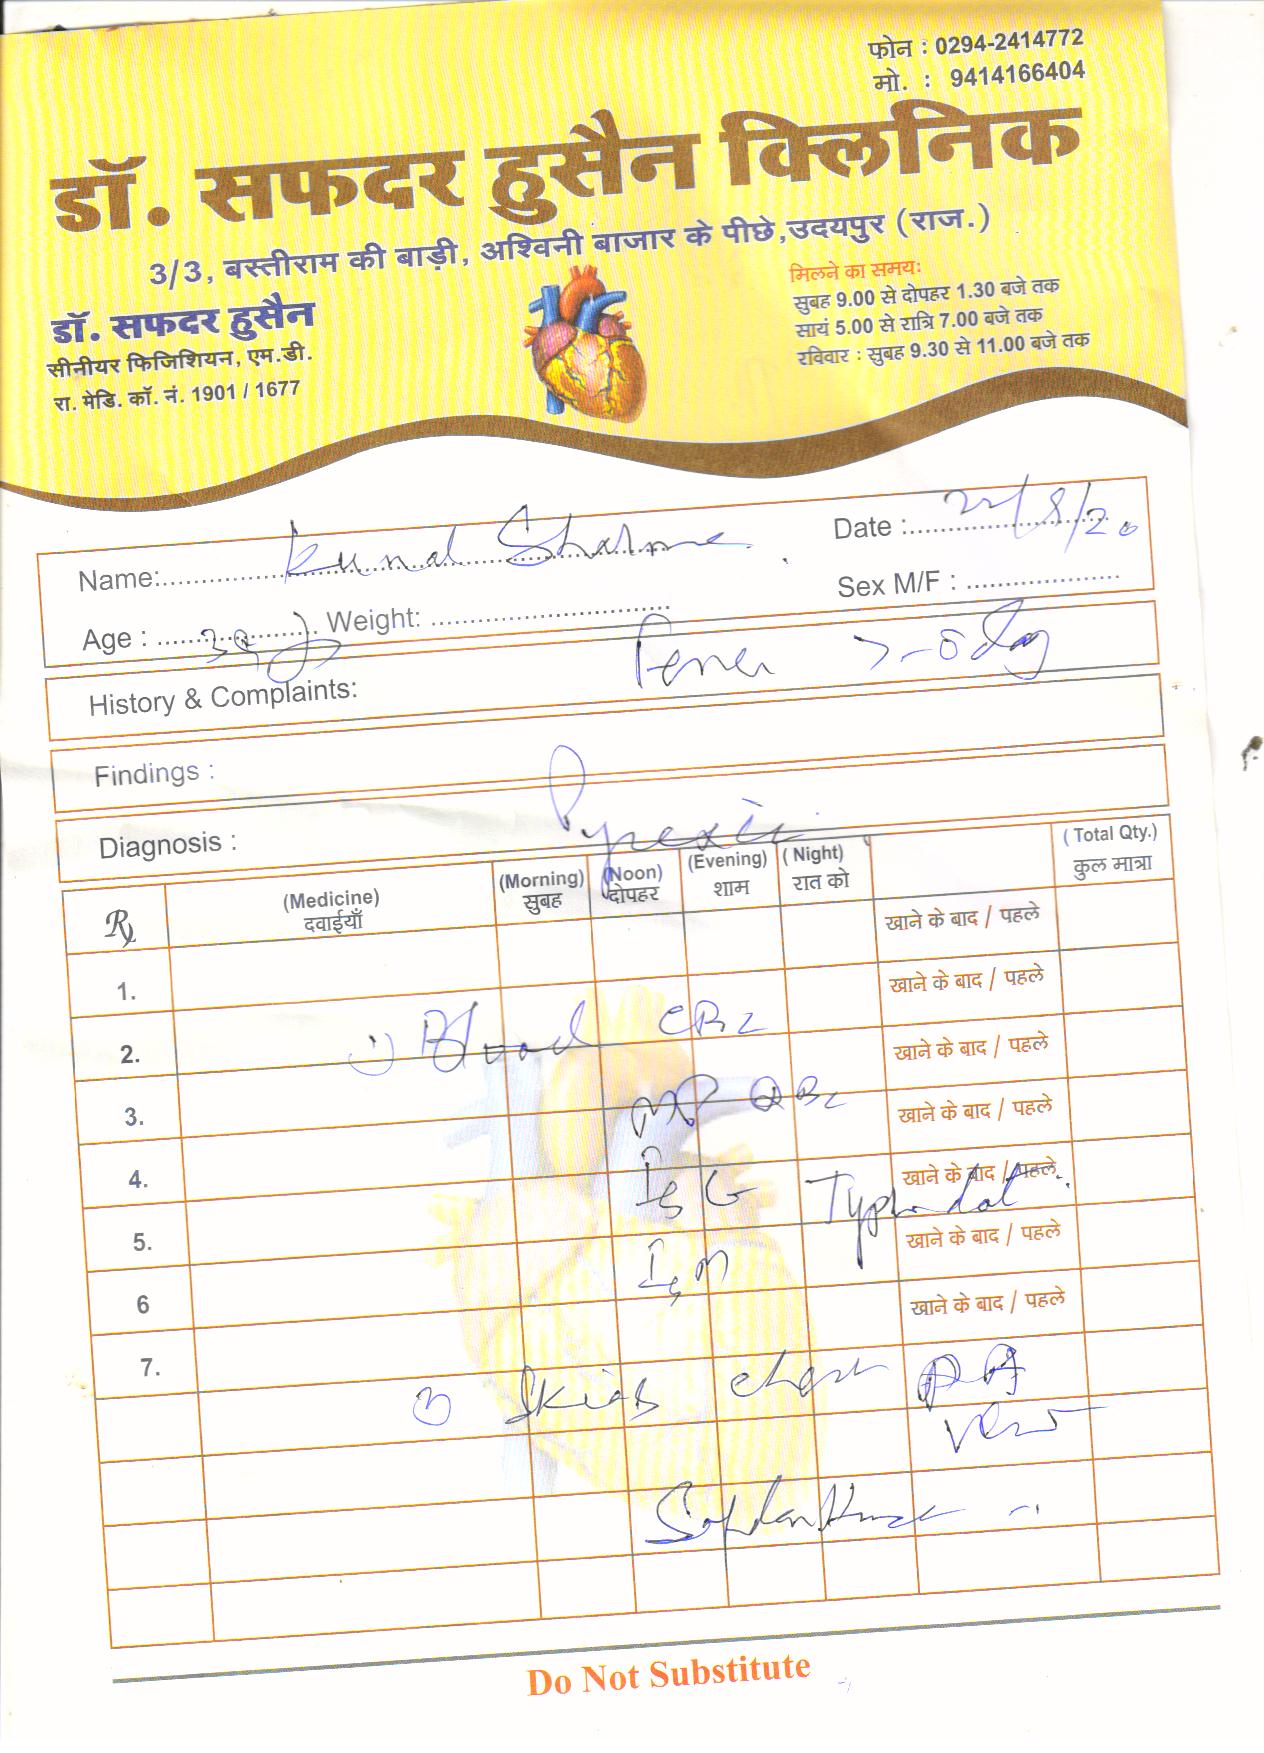 फोन : 0294-2414772
मो. : 9414166404
डॉ. सफदर हुसैन क्लिनिक
3/3, बस्तीराम की बाड़ी, अश्विनी बाजार के पीछे,उदयपुर (राज.)
डॉ. सफदर हुसैन
सीनीयर फिजिशियन, एम.डी.
रा. मेडि. कॉ. नं. 1901 / 1677
मिलने का समय:
सुबह 9.00 से दोपहर 1.30 बजे तक
सायं 5.00 से रात्रि 7.00 बजे तक
रविवार : सुबह 9.30 से 11.00 बजे तक
Name: Kunal Sharma Date : 22/8/20
Age : Weight: Sex M/F :
History & Complaints: Fever
Findings :
Diagnosis : Pyrexia
Rx (Medicine) (Morning) (Noon) (Evening) (Night) (Total Qty.)
दवाईयाँ सुबह दोपहर शाम रात को कुल मात्रा
खाने के बाद / पहले
1. खाने के बाद / पहले
2. 1) Blood CBC खाने के बाद / पहले
3. MP QBC खाने के बाद / पहले
4. IgG Typhidot खाने के बाद / पहले
5. IgM खाने के बाद / पहले
6 खाने के बाद / पहले
7.
Chest PA
View
Do Not Substitute